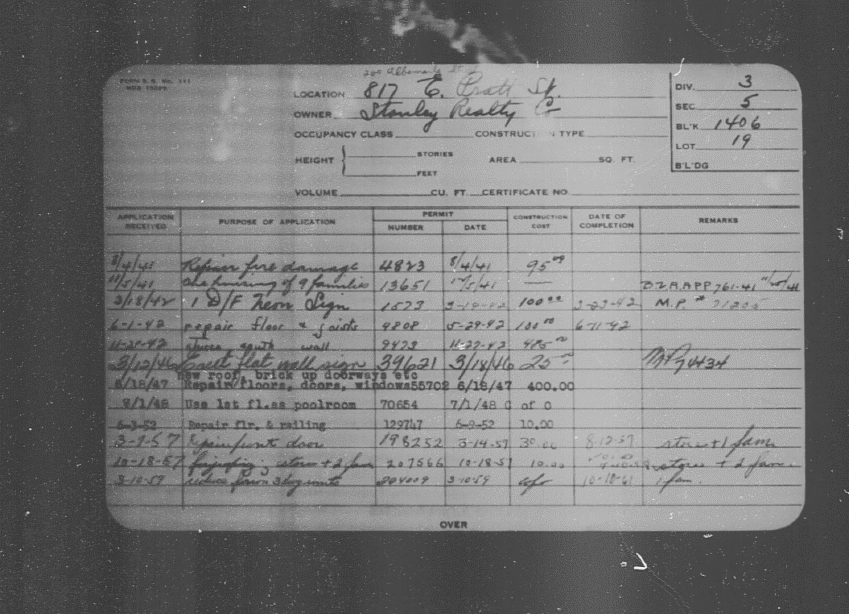 FORM S. B. No. 111
200 Albemarle St
LOCATION 817 E. Pratt St.
OWNER Stanley Realty Co
OCCUPANCY CLASS CONSTRUCTION TYPE
HEIGHT STORIES FEET AREA SQ. FT.
VOLUME CU. FT. CERTIFICATE NO
DIV. 3
SEC 5
BL'K 1406
LOT 19
B'L'DG
APPLICATION RECEIVED PURPOSE OF APPLICATION PERMIT NUMBER DATE CONSTRUCTION COST DATE OF COMPLETION REMARKS
8/4/41 Repair fire damage 4823 8/4/41 95.00
11/5/41 of 9 families 13651 B.Z.A. APP 761-41
3/18/42 1 D/F Neon Sign 1573 3-19-42 100.00 3-23-42 M.P. #
6-1-42 repair floor & joists 4808 5-29-42 100.00 6-11-42
11-25-42 south wall 9473 11-27-42 485.00
3/12/46 Erect flat wall sign 39621 3/14/46 25.00
New roof, brick up doorways etc
6/18/47 Repair floors, doors, windows 55702 6/18/47 400.00
8/1/48 Use 1st fl.as poolroom 70654 7/1/48 C of O
6-3-52 Repair flr. & railing 129747 6-9-52 10.00
3-9-57 Repair front door 198252 3-14-57 30.00 8-12-57 store + 1 fam
10-18-57 store + 2 fam 207566 10-18-57 10.00 store + 2 fam
3-10-59 3-10-59 10-10-61 1 fam.
OVER